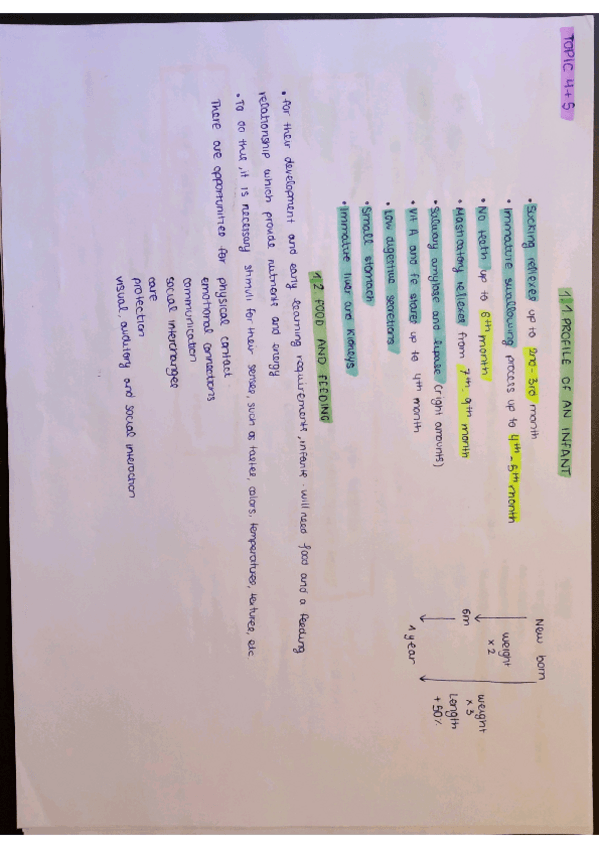 TOPIC 4+5
1.1 PROFILE OF AN INFANT
• Sucking reflexes up to 2nd-3rd month
• Immature swallowing process up to 4th-5th month
• No teeth up to 6th month
• Masticatory reflexes from 7th-9th month
• Salivary amylase and lipase (right amounts)
• Vit A and Fe stores up to 4th month
• Low digestive secretions
• Small stomach
• Immature liver and kidneys
New born
weight
x 2
6m
1 year
weight
x 3
Length
+ 50%
1.2 FOOD AND FEEDING
• For their development and early learning requirements, infants will need food and a feeding
relationship which provide nutrients and energy
• To do this, it is necessary stimuli for their sense, such as tastes, colors, temperatures, textures, etc
There are opportunities for physical contact
emotional connections
communication
social interchanges
care
protection
visual, auditory and social interaction